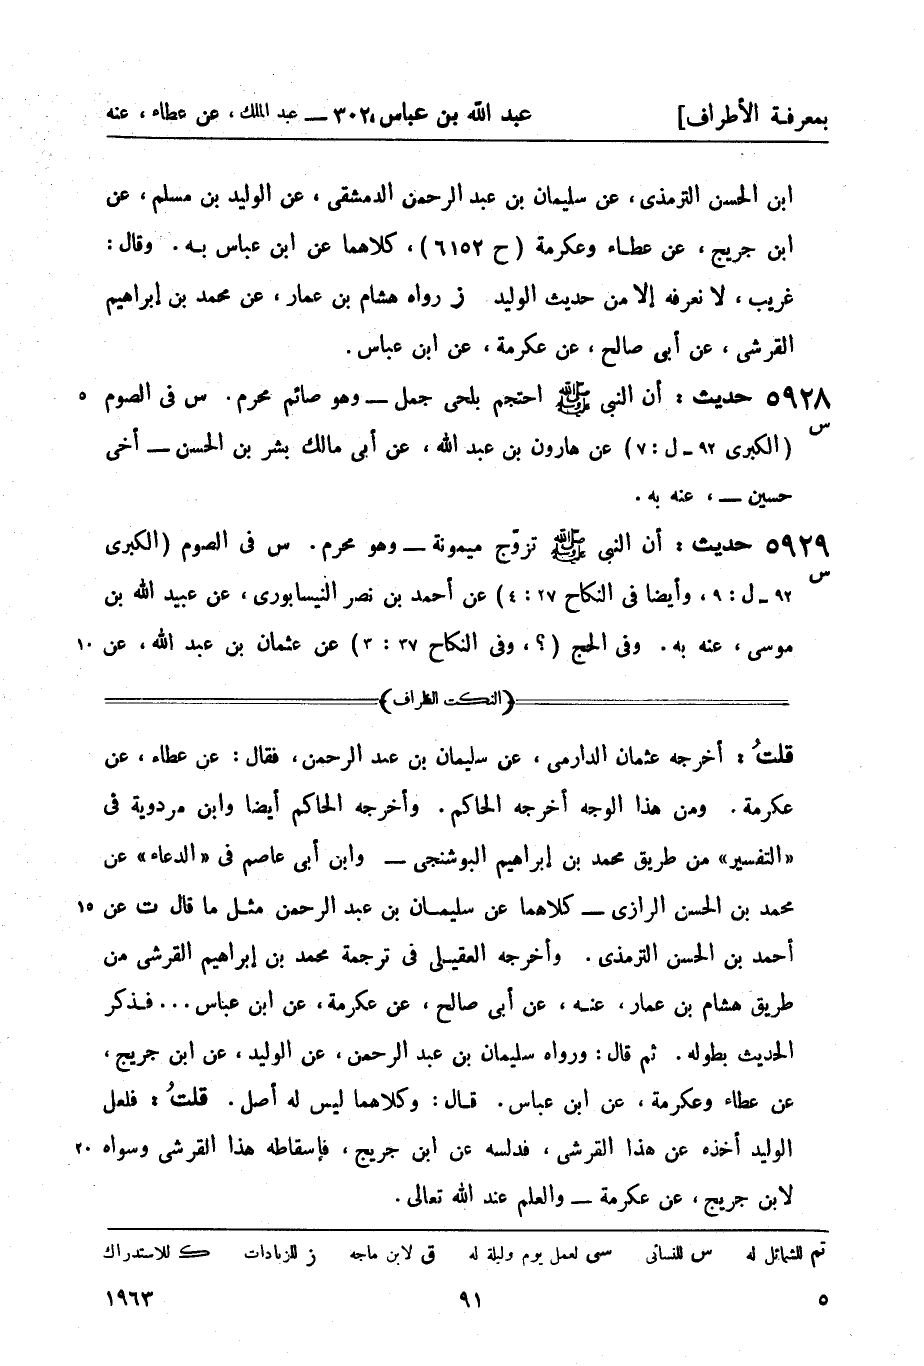 بمعرفة الأطراف] عبد الله بن عباس، ٣٠٢ ـــ عبد الملك، عن عطاء، عنه
ابن الحسن الترمذى، عن سليمان بن عبد الرحمن الدمشقى، عن الوليد بن مسلم، عن
ابن جريج، عن عطاء وعكرمة (ح ٦١٥٢)، كلاهما عن ابن عباس به. وقال:
غريب، لا نعرفه إلا من حديث الوليد ز رواه هشام بن عمار، عن محمد بن إبراهيم
القرشى، عن أبى صالح، عن عكرمة، عن ابن عباس.
٥٩٢٨ حديث: أن النبى ﷺ احتجم بلحى جمل ـــ وهو صائم محرم. س فى الصوم ٥
س (الكبرى ٩٢ ـ ل: ٧) عن هارون بن عبد الله، عن أبى مالك بشر بن الحسن ـــ أخى
حسين ـــ، عنه به.
٥٩٢٩ حديث: أن النبى ﷺ تزوّج ميمونة ـــ وهو محرم. س فى الصوم (الكبرى
س ٩٢ ـ ل: ٩، وأيضا فى النكاح ٢٧: ٤) عن أحمد بن نصر النيسابورى، عن عبيد الله بن
موسى، عنه به. وفى الحج (؟، وفى النكاح ٣٧: ٣) عن عثمان بن عبد الله، عن ١٠
(النكت الظراف)
قلتُ: أخرجه عثمان الدارمى، عن سليمان بن عبد الرحمن، فقال: عن عطاء، عن
عكرمة. ومن هذا الوجه أخرجه الحاكم. وأخرجه الحاكم أيضا وابن مردوية فى
«التفسير» من طريق محمد بن إبراهيم البوشنجى ـــ وابن أبى عاصم فى «الدعاء» عن
محمد بن الحسن الرازى ـــ كلاهما عن سليمان بن عبد الرحمن مثل ما قال ت عن ١٥
أحمد بن الحسن الترمذى. وأخرجه العقيلى فى ترجمة محمد بن إبراهيم القرشى من
طريق هشام بن عمار، عنه، عن أبى صالح، عن عكرمة، عن ابن عباس... فذكر
الحديث بطوله. ثم قال: ورواه سليمان بن عبد الرحمن، عن الوليد، عن ابن جريج،
عن عطاء وعكرمة، عن ابن عباس. قال: وكلاهما ليس له أصل. قلتُ: فلعل
الوليد أخذه عن هذا القرشى، فدلسه عن ابن جريج، فإسقاطه هذا القرشى وسواه ٢٠
لابن جريج، عن عكرمة ـــ والعلم عند الله تعالى.
تم للشمائل له س للنسائى سى لعمل يوم وليلة له ق لابن ماجه ز للزيادات ك للاستدراك
٥ ٩١ ١٩٦٣